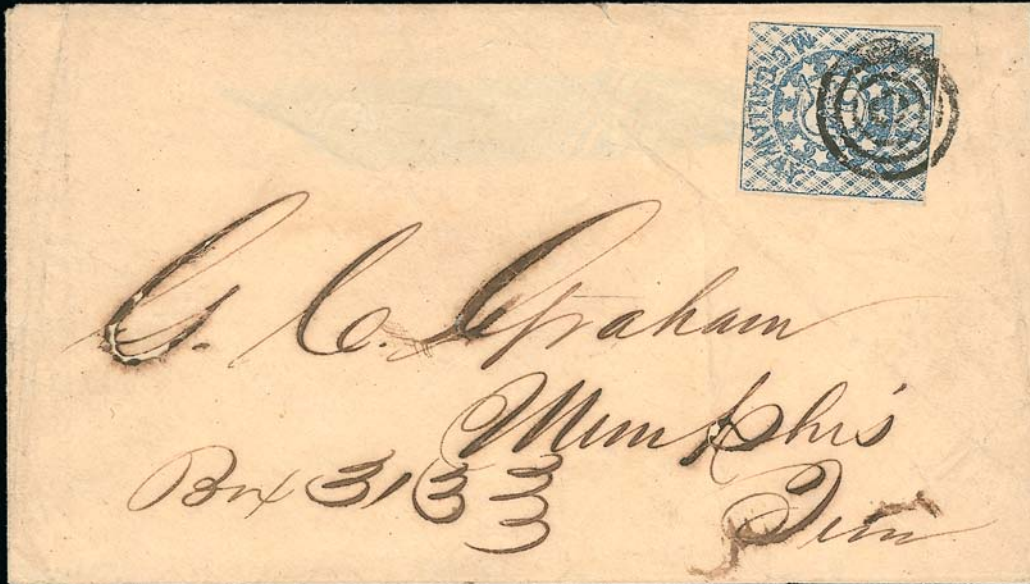 M.C. GALLAWAY
G. C. Graham
Memphis
Box
Tenn